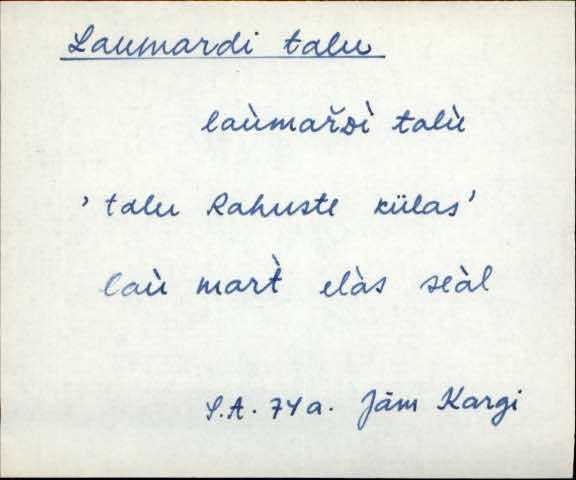 Laumardi talu
laùmar̆ᴅì talù
'talu Rahuste külas'
laù mar̀t elàs seàl
S.A. 74a. Jäm Kargi